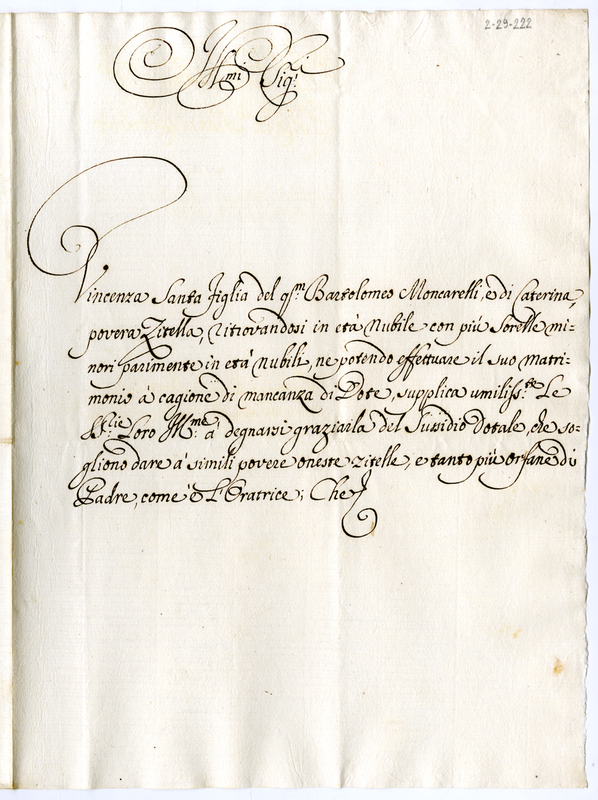 2-29-222
Ill.mi Sig.i
Vincenza Santa figlia del qm. Bartolomeo Moncarelli, e di Caterina,
povera Zitella, ritrovandosi in età Nubile con più Sorelle mi-
nori parimente in età nubili, ne potendo effettuare il suo Matri-
monio à cagione di mancanza di Dote, supplica umiliss.te Le
SS.rie Loro Ill.me à degnarsi graziarla del Sussidio Dotale, che so-
gliono dare à simili povere oneste zitelle, e tanto più orfane di
Padre, come è L'Oratrice; Che